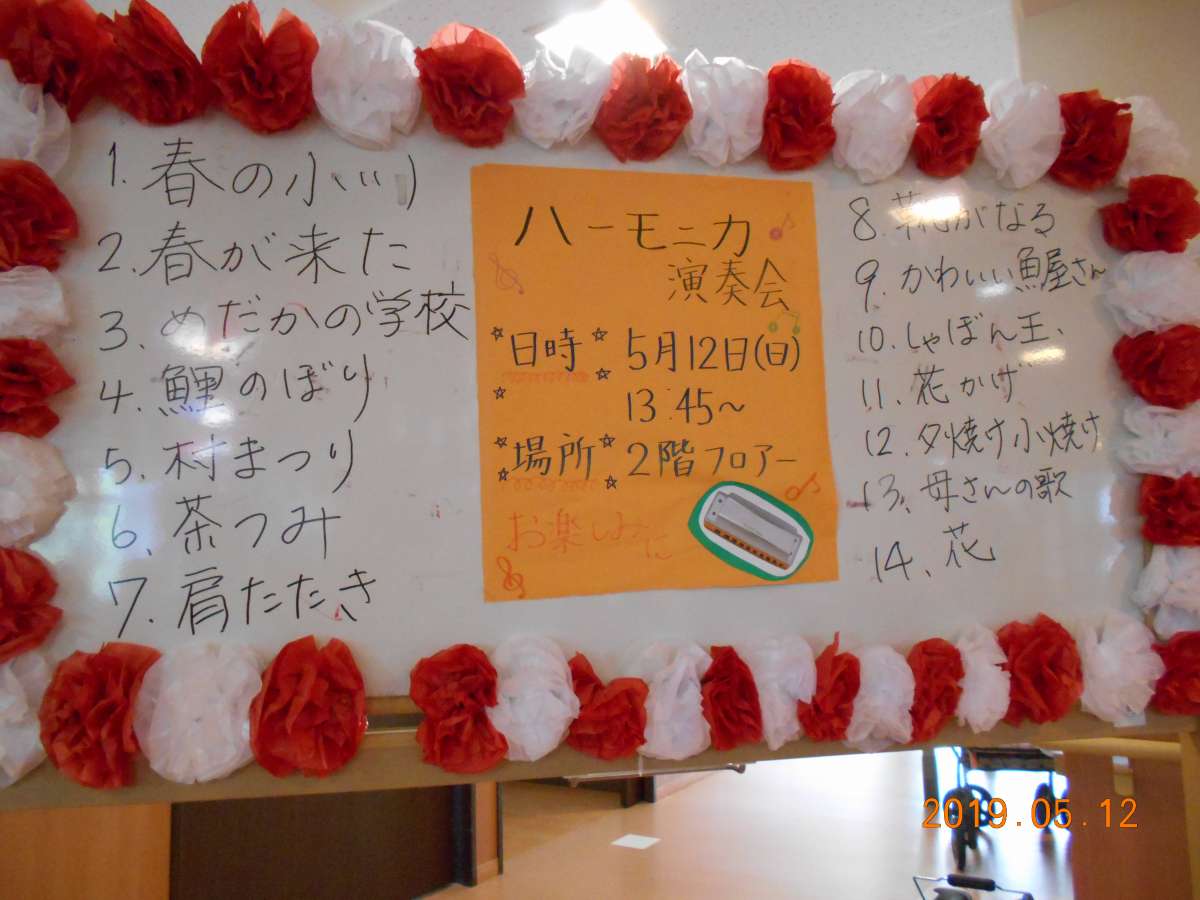 1. 春の小川
2. 春が来た
3. めだかの学校
4. 鯉のぼり
5. 村まつり
6. 茶つみ
7. 肩たたき
ハーモニカ
演奏会
日時 5月12日(日)
13:45～
場所 2階フロアー
お楽しみに
8. 靴がなる
9. かわいい魚屋さん
10. しゃぼん玉
11. 花かげ
12. 夕焼け小焼け
13. 母さんの歌
14. 花
2019.05.12